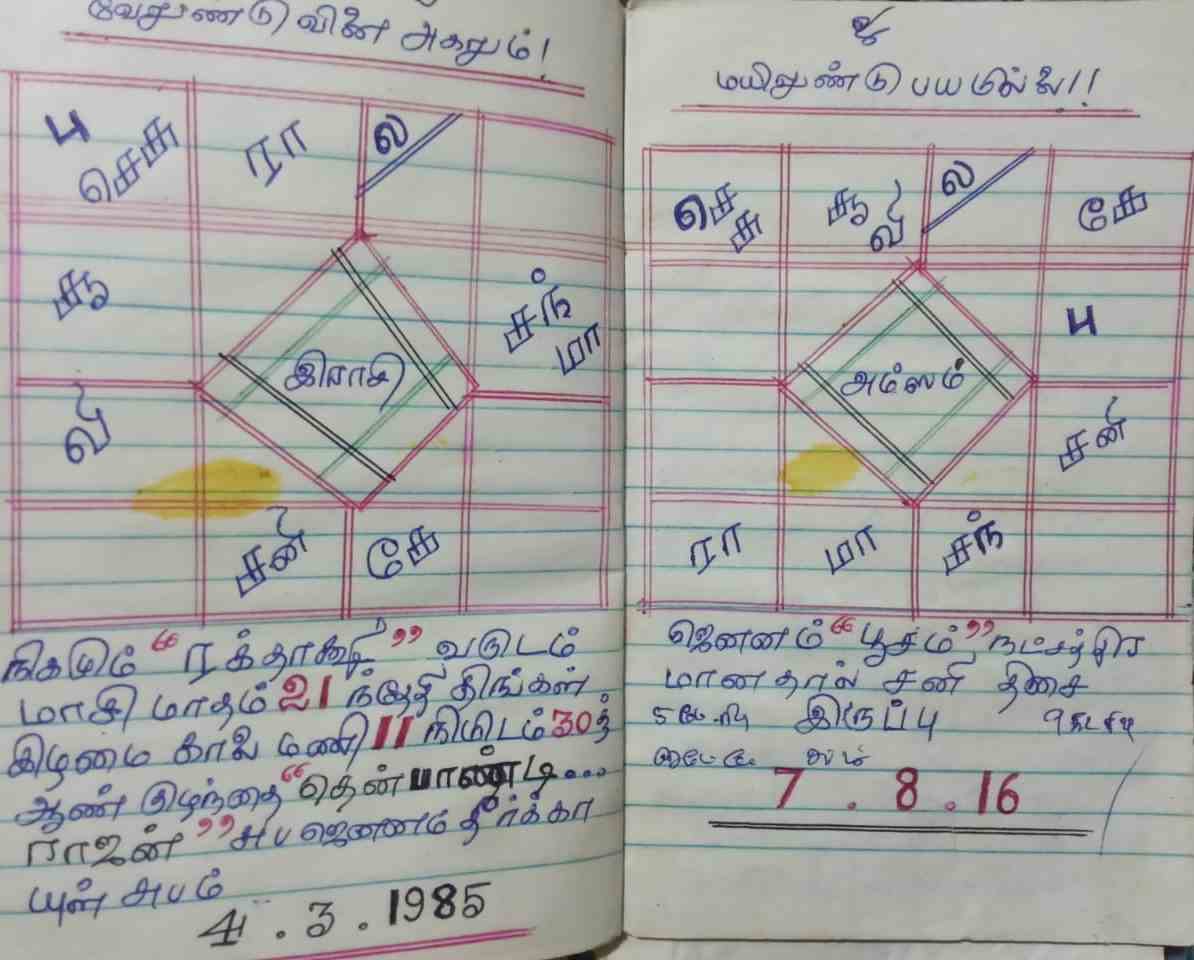 வேலுண்டு வினை அகலும்!
பு ரா ல
செசு
சூ
சந்
மா
இராசி
வி
சனி கே
நிகழும் "ரக்தாக்ஷி" வருடம்
மாசி மாதம் 21 ந்தேதி திங்கள்
கிழமை காலை மணி 11 நிமிடம் 30த்
ஆண் குழந்தை "தென்பாண்டி...
ராஜன்" சுப ஜெனனம் தீர்க்கா
யுள் சுபம்
4.3.1985
உ
மயிலுண்டு பயமில்லை!!
செ சூ ல கே
சு வி
பு
அம்ஸம்
சனி
ரா மா சந்
ஜெனனம் "பூசம்" நட்சத்திர
மானதால் சனி திசை
இருப்பு
7.8.16